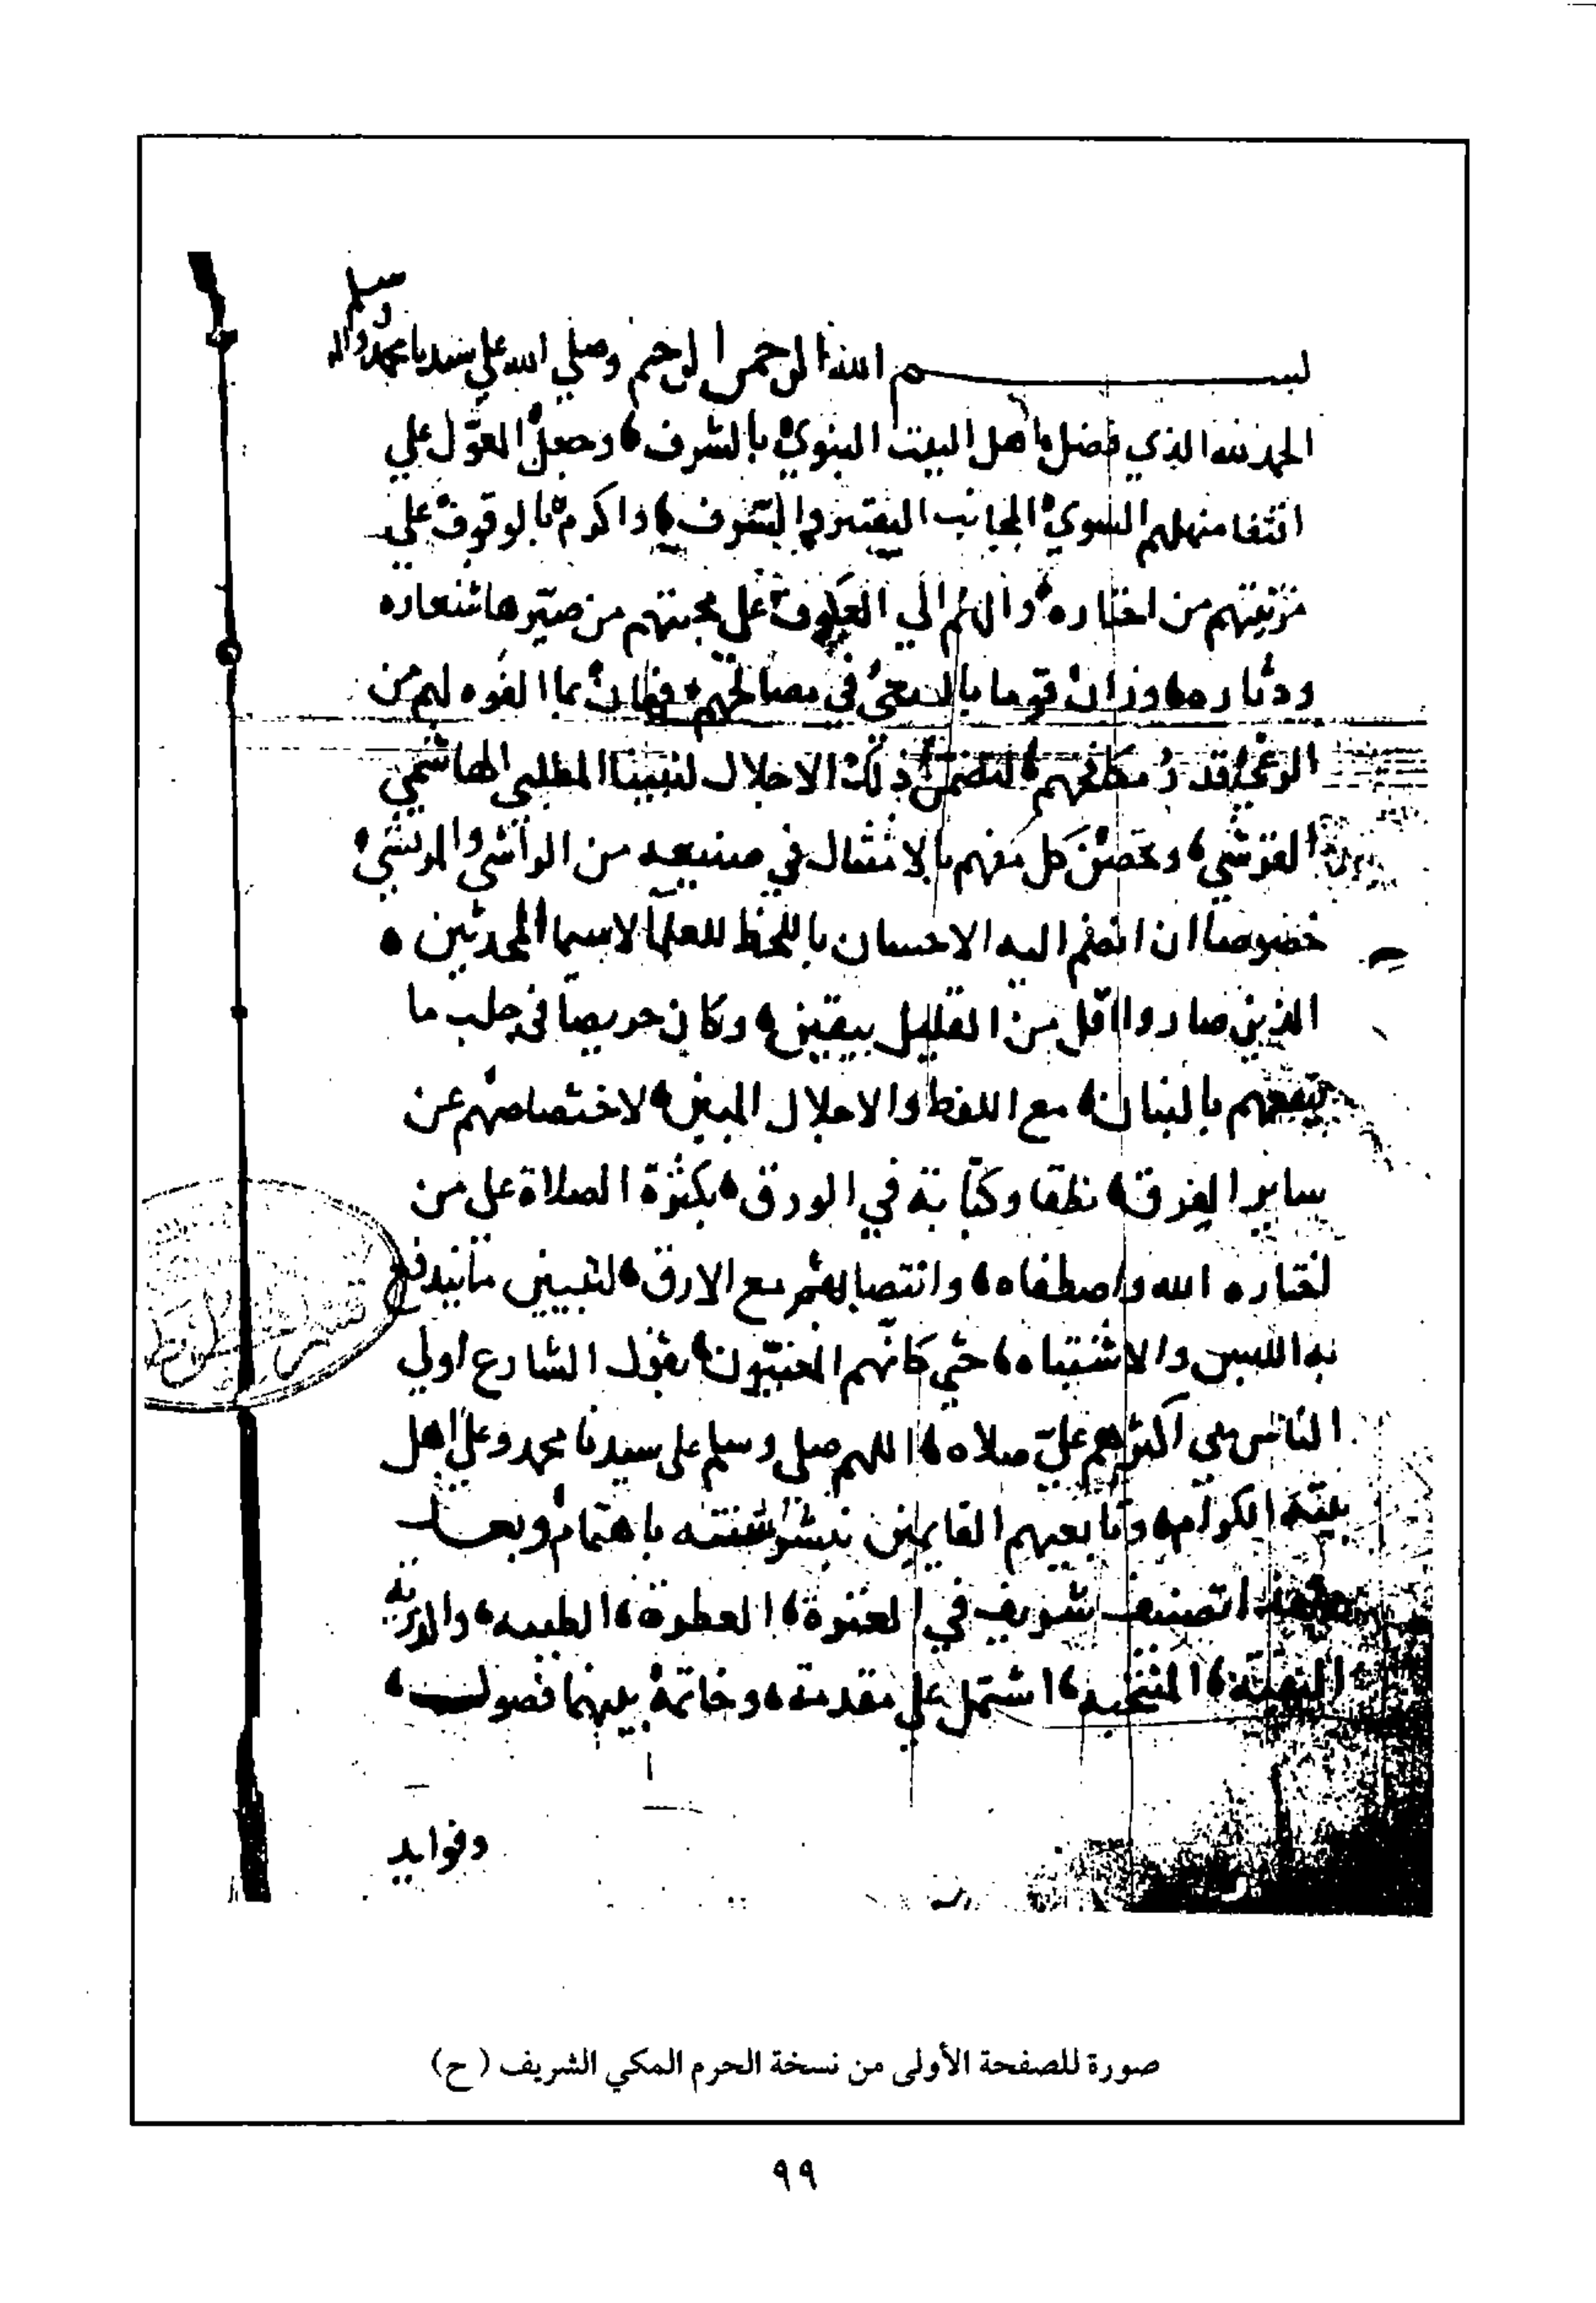 بسم الله الرحمن الرحيم وصلى الله على سيدنا محمد واله وسلم
الحمد لله الذي فضل اهل البيت النبوي بالشرف، وجعل المعول على
اقتفا منهلهم السوي المجانب التقتير والسرف، واكرم بالوقوف على
من اختاره والهم الي العكوف على محبتهم من صير هاشعاره
ودثاره، وزان قوما بالسعي في مصالحهم، بما الفوه لهم من
ذلك الاجلال لنبينا المطلبي الهاشمي
القرشي، كل منهم بالامتثال في صنيعه من الواشي والمرتشي
خصوصا ان انضم اليه الاحسان باللحظ للعلما لاسيما المحدثين ه
الذين صاروا اقل من القليل بيقين، وكان حريصا في جلب ما
ينفعهم بالبنان، مع اللفظ والاجلال المبين، لاختصاصهم عن
ساير الفرق، نطقا وكتابة في الورق، بكثرة الصلاة على من
اختاره الله واصطفاه، وانتصابهم مع الارق، لتبيين ما يندفع
به اللبس والاشتباه، حتي كانهم المعنيون بقول الشارع اولي
الناس بي اكثرهم علي صلاه، اللهم صلي وسلم على سيدنا محمد وعلى اهل
بيته الكرام، وتابعيهم القايمين بنشر سنته باهتمام وبعد
فهذا تصنيف شريف في العترة، العطرة، الطيبه، والذرية
البهية، المنتخبه، اشتمل على مقدمة، وخاتمة بينهما فصول،
وفوايد
صورة للصفحة الأولى من نسخة الحرم المكي الشريف (ح)
٩٩